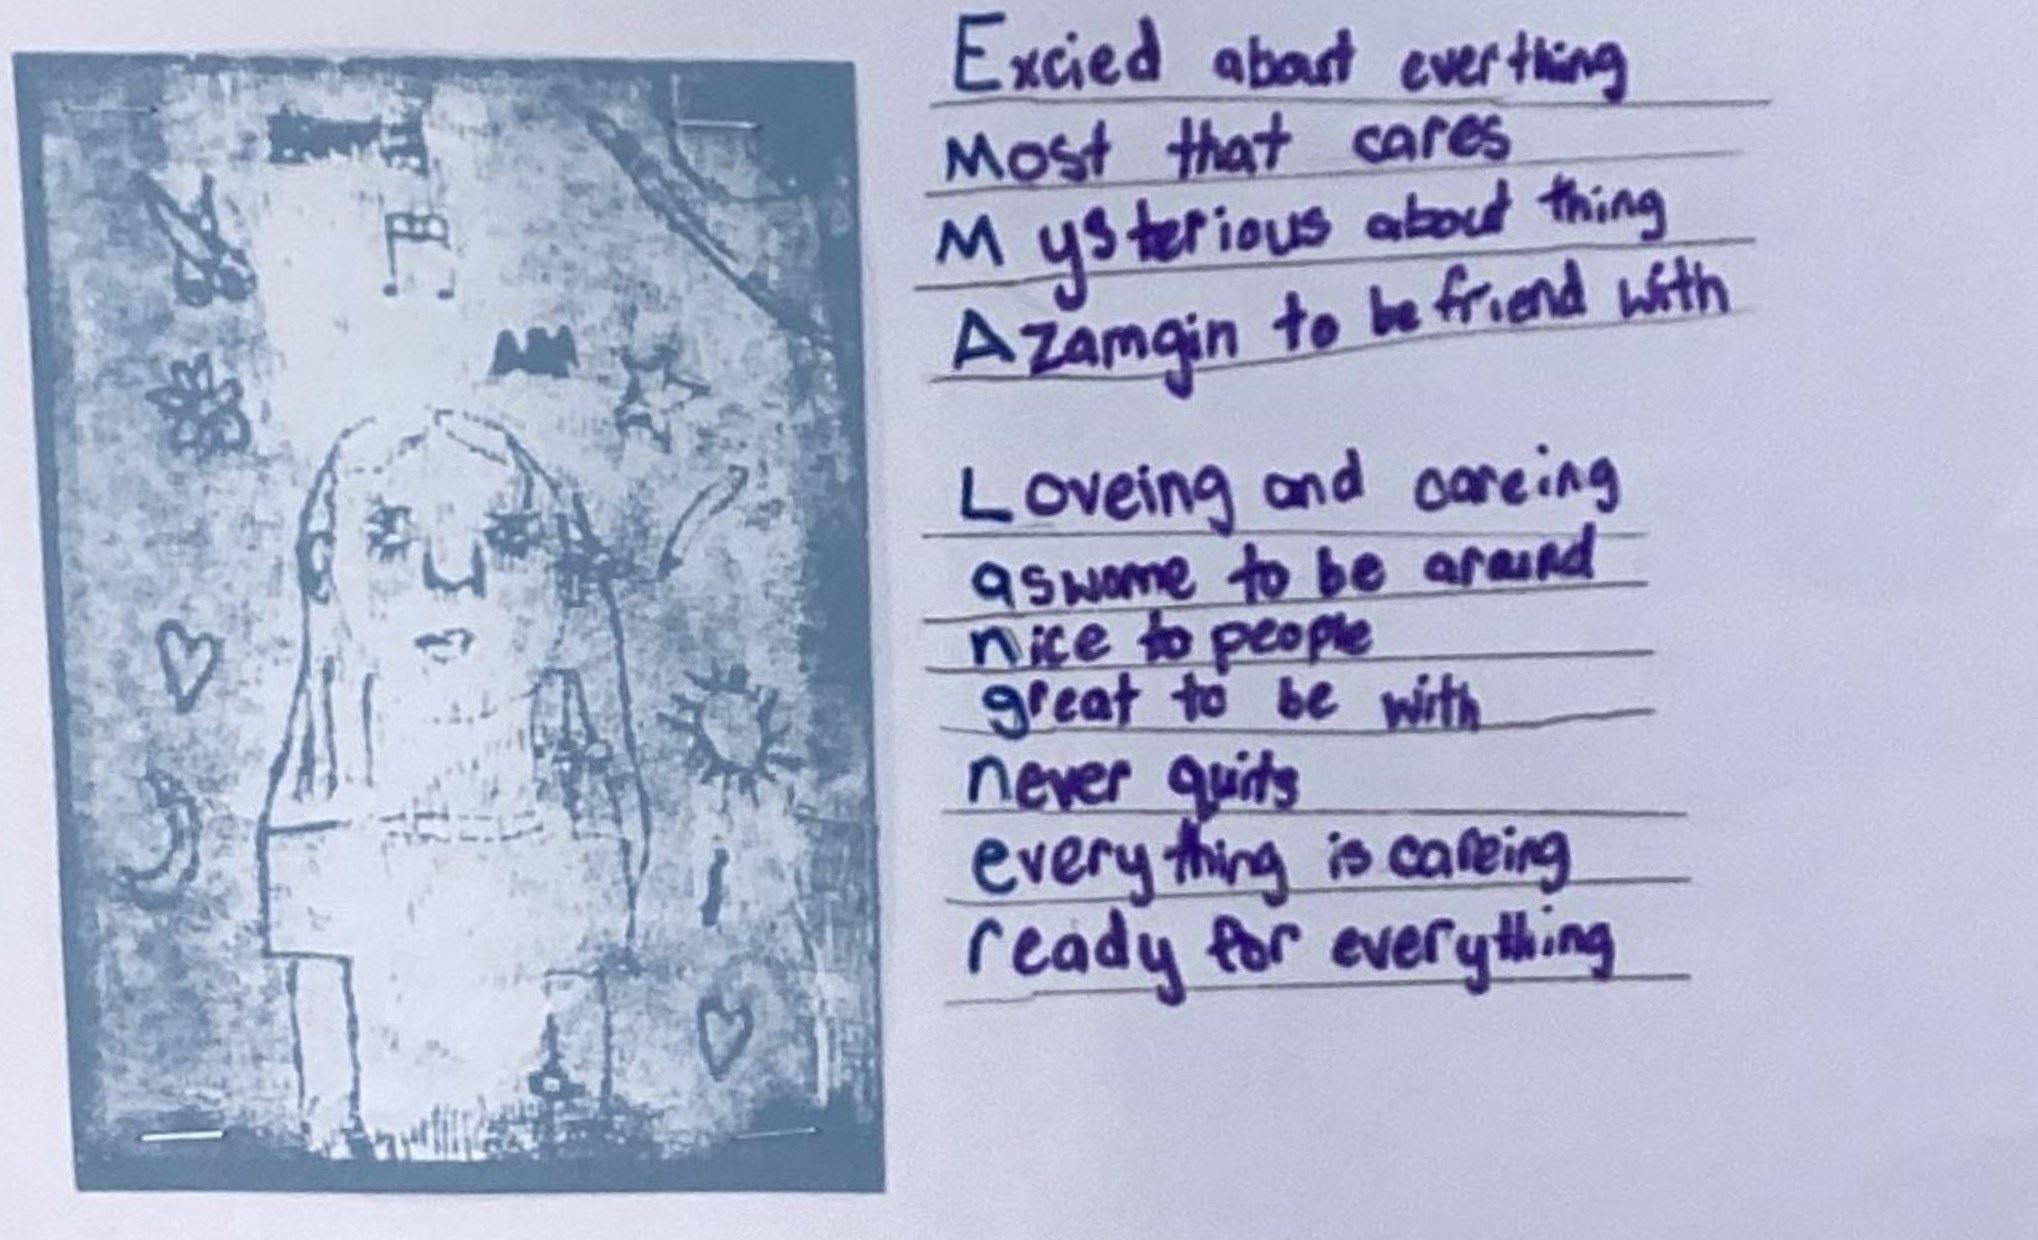 Excied about everthing
Most that cares
Mysterious about thing
Azamgin to be friend with
Loveing and careing
aswome to be around
nice to people
great to be with
never quits
everything is careing
ready for everything